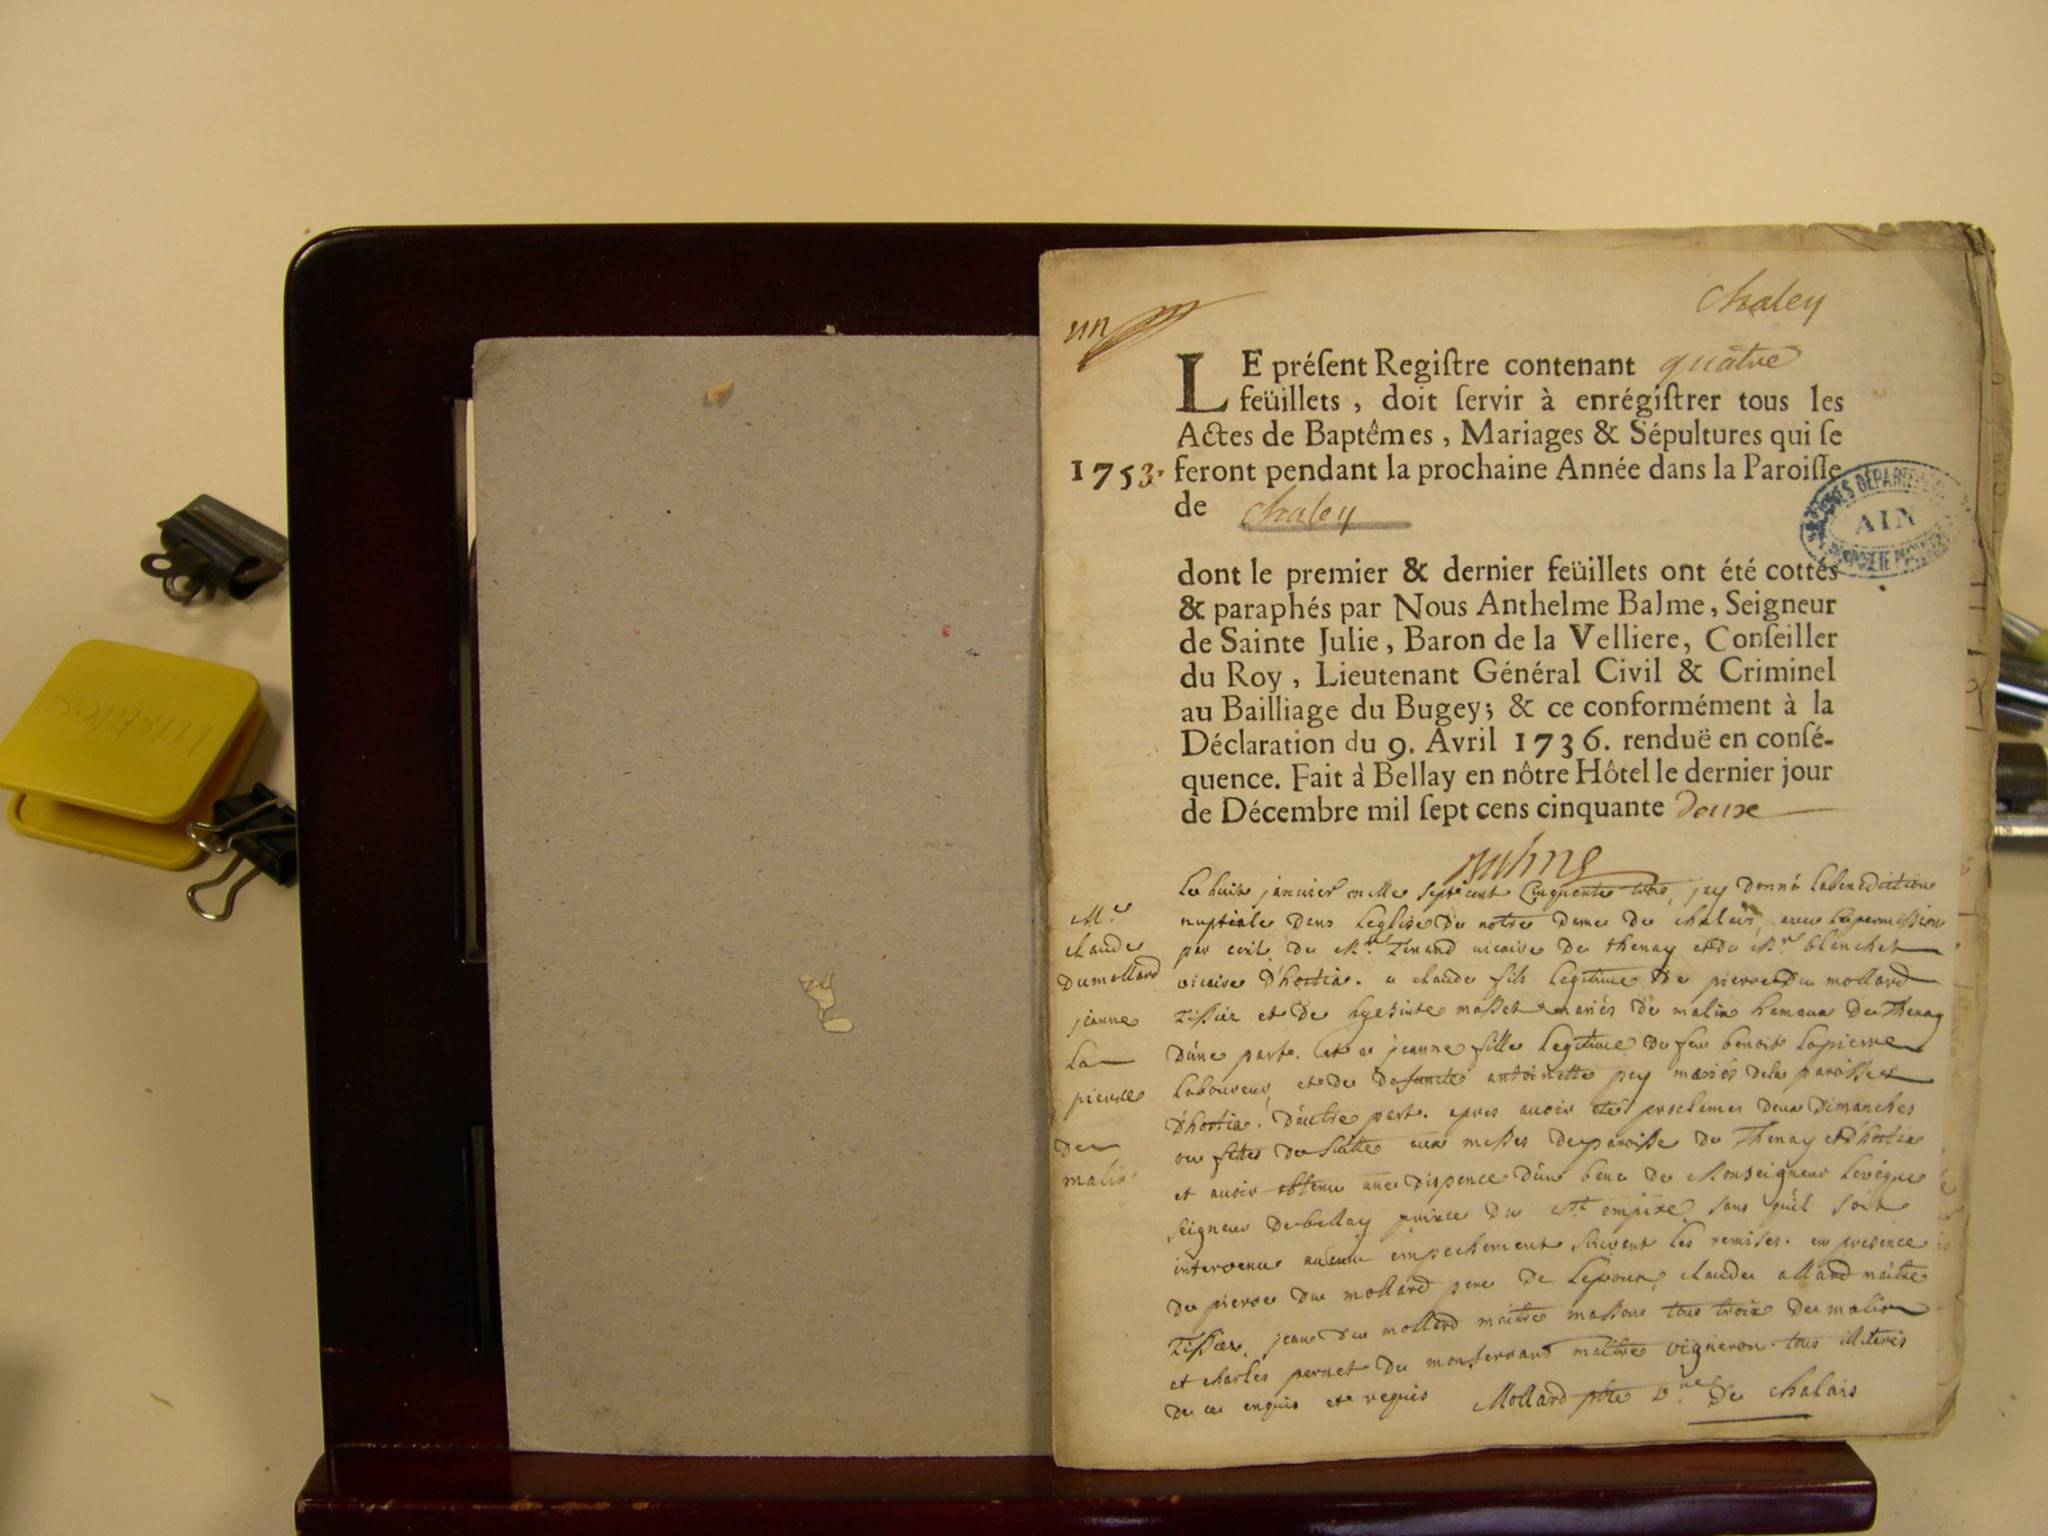 chaley
un
LE préſent Regiſtre contenant quatre
feüillets, doit ſervir à enrégiſtrer tous les
Actes de Baptêmes, Mariages & Sépultures qui ſe
1753. feront pendant la prochaine Année dans la Paroiſſe
de chaley
AIN
dont le premier & dernier feüillets ont été cottés
& paraphés par Nous Anthelme Balme, Seigneur
de Sainte Julie, Baron de la Velliere, Conſeiller
du Roy, Lieutenant Général Civil & Criminel
au Bailliage du Bugey; & ce conformément à la
Déclaration du 9. Avril 1736. renduë en conſé-
quence. Fait à Bellay en nôtre Hôtel le dernier jour
de Décembre mil ſept cens cinquante deux
Le huit janvier mille sept cent cinquante trois, jay donné la benediction
nuptiale dans Leglise de notre dame de chalais, avec la permission
par ecrit du Mre Tenand vicaire de thenay et du Mre blanchet
vicaire d'hostia. a claude fils Legitime de pierre du mollard
Tissier et de hyesinte masset mariés de malix hameau de Thenay
d'une part. et a jeanne fille Legitime de feu benoit Lapierre
Laboureur, et de defuncte antoinette pey mariés dela paroisse
d'hostia. d'autre part. apres avoir eté proclamés deux dimanches
ou fettes de suitte aux messes de paroisse de Thenay et d'hostia
et avoir obtenu une dispence d'un banc de Monseigneur Leveque
seigneur de bellay prince du St empire sans qu'il soit
intervenu aucun empechement suivant les remises. en presence
de pierre du mollard pere de Lepoux, claude allard maitre
Tissier, jean du mollard maitre masson tous trois de malix
et charles pernet de monferrant maitre vigneron tous illiterés
de ce enquis et requis Mollard pbre vre de chalais
Mre
claude
dumollard
jeanne
La
pierre
de
malix